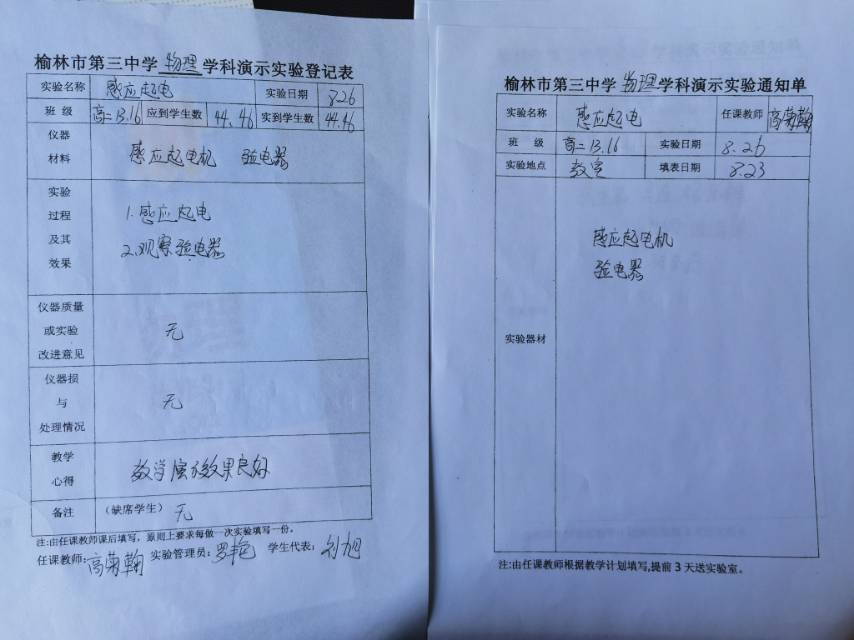 榆林市第三中学 物理 学科演示实验登记表
实验名称 感应起电 实验日期 8.26
班 级 高二13.16 应到学生数 44.46 实到学生数 44.46
仪器
材料
感应起电机 验电器
实验
过程
及其
效果
1.感应起电
2.观察验电器
仪器质量
或实验
改进意见
无
仪器损
与
处理情况
无
教学
心得
教学演示效果良好
备注 (缺席学生) 无
注:由任课教师课后填写，原则上要求每做一次实验填写一份。
任课教师:高菊翰 实验管理员:罗艳 学生代表:刘旭
榆林市第三中学 物理 学科演示实验通知单
实验名称 感应起电 任课教师 高菊翰
班 级 高二13.16 实验日期 8.26
实验地点 教室 填表日期 8.23
实验器材
感应起电机
验电器
注:由任课教师根据教学计划填写,提前3天送实验室。